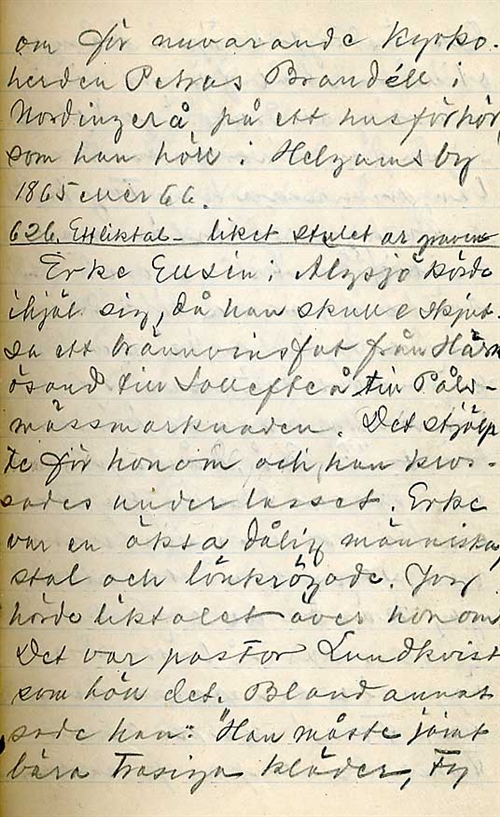 om för nuvarande kyrko-
herden Petrus Brandell i
Nordingerå, på ett husförhör,
som han höll i Helgums by
1865 eller 66.
626. Ett liktal - liket stulet ur graven
Erke Erssin i Alysjö körde
ihjäl sig, då han skulle skjut-
sa ett brännvinsfat från Härn
ösand till Sollefteå till Påls-
mässmarknaden. Det stjälp
te för honom och han kros-
sades under lasset. Erke
var en äkta dålig människa,
stal och lönkrögade. Jag
hörde liktalet över honom
Det var pastor Lundkvist
som höll det. Bland annat
sade han: "Han måste jämt
bära trasiga kläder, ty